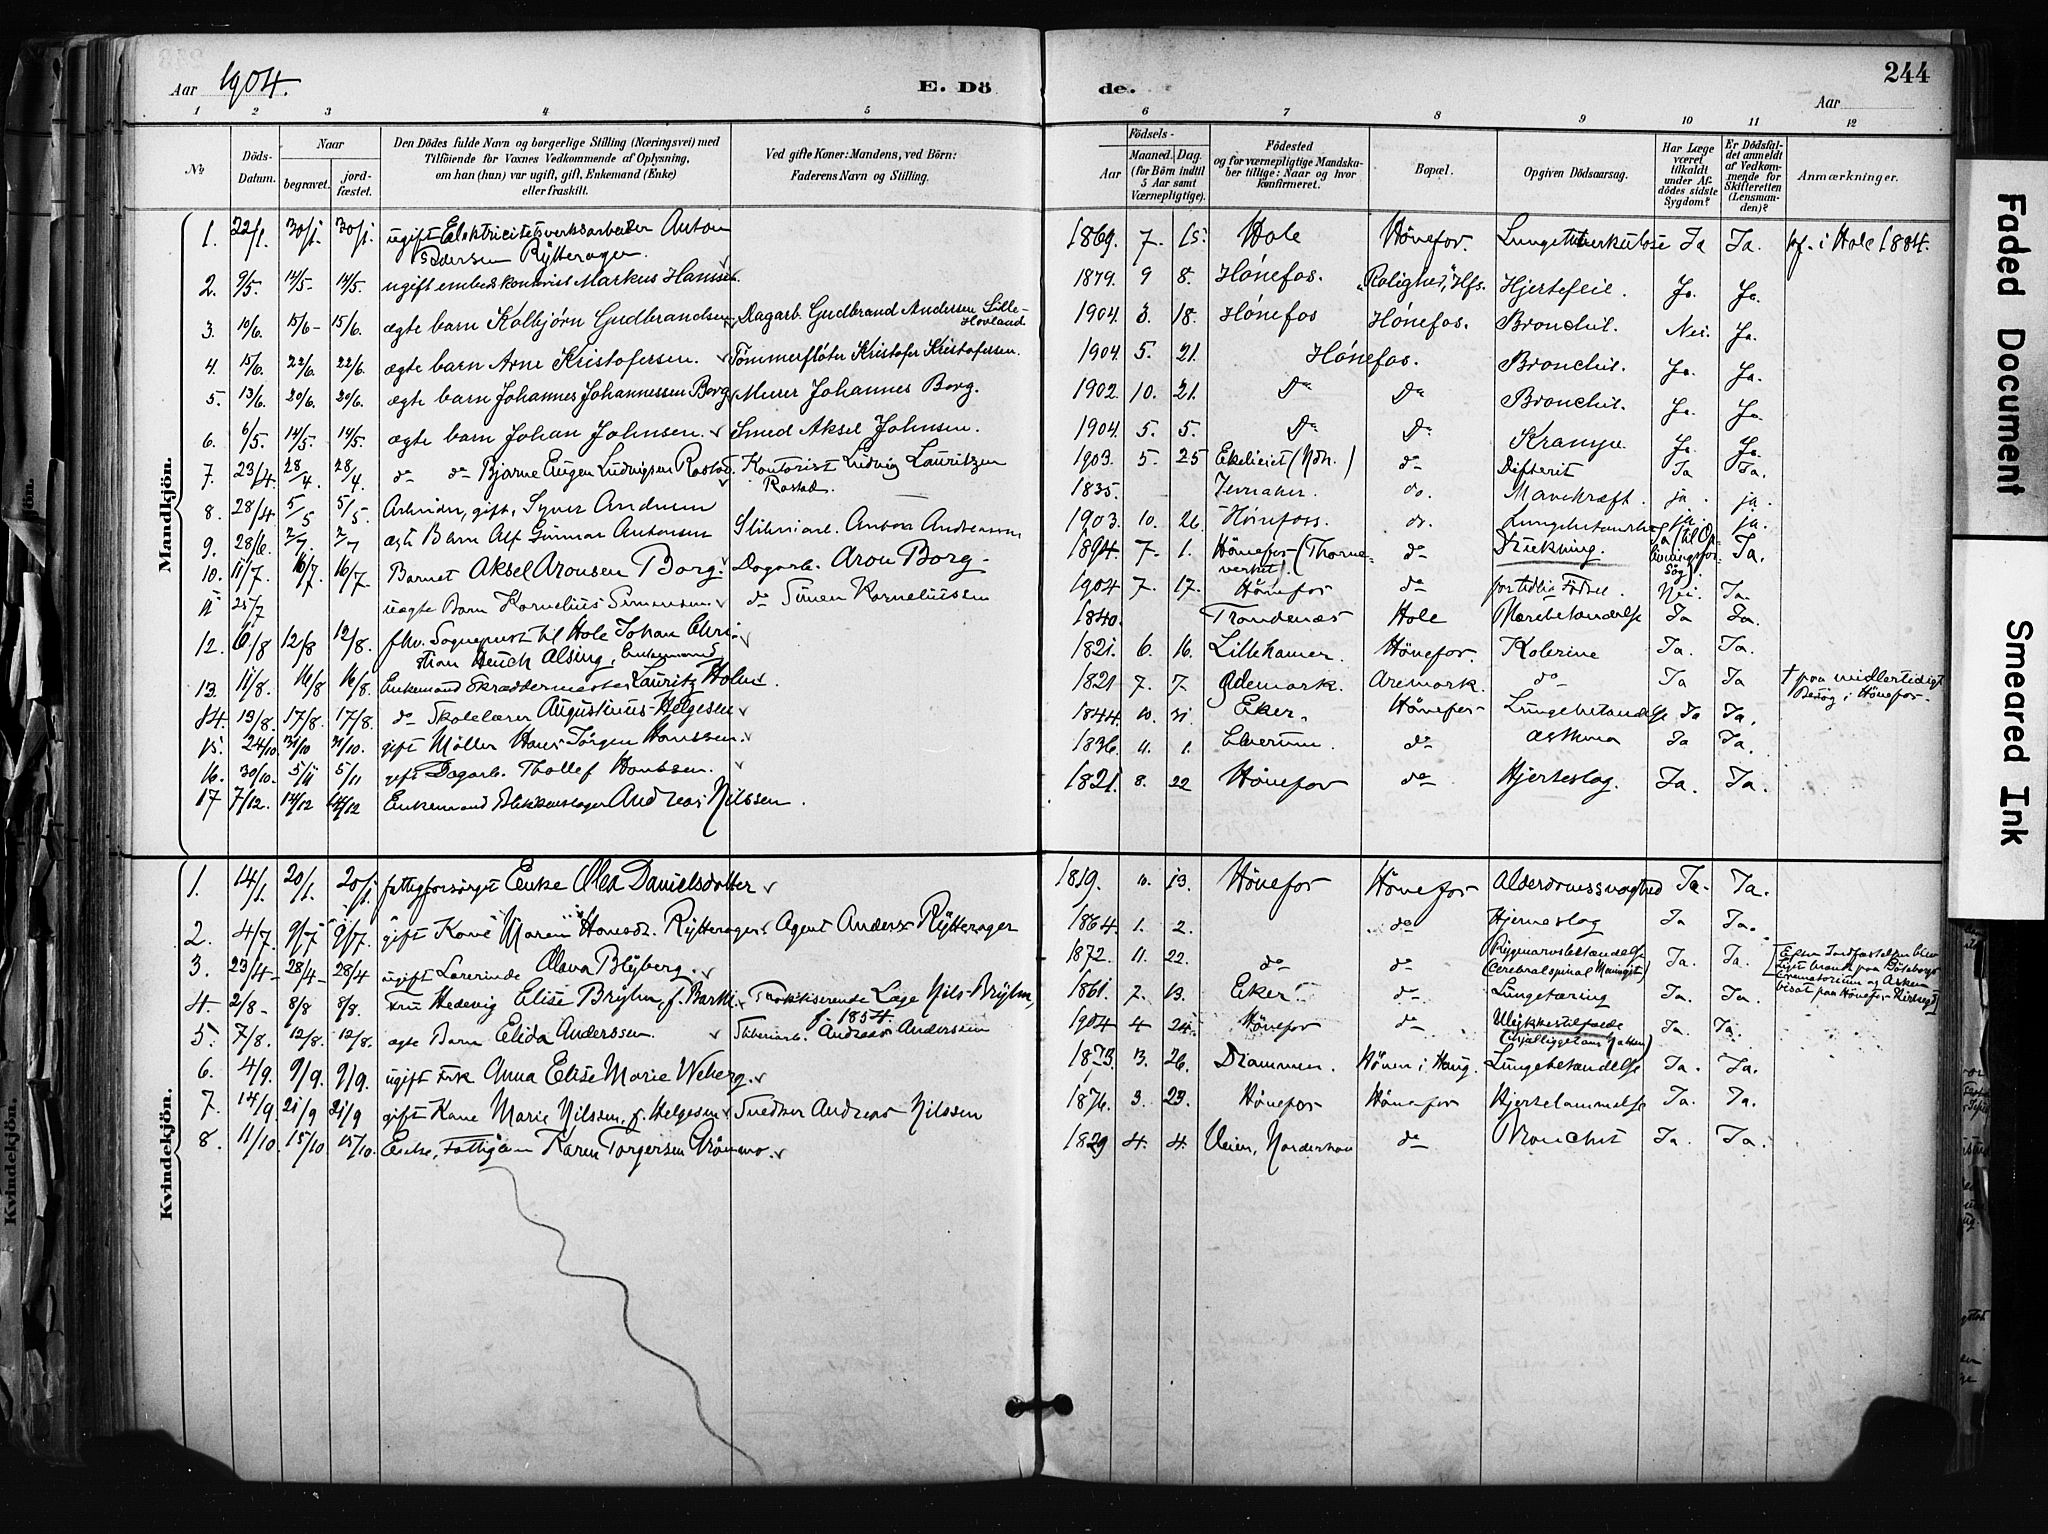 Aar 1904.
E. Dö de.
244
Aar
1 2 3 4 5 6 7 8 9 10 11 12
No
Döds-Datum.
Naar
begravet.
jord-fæstet.
Den Dödes fulde Navn og borgerlige Stilling (Næringsvei) med
Tilföiende for Voxnes Vedkommende af Oplysning,
om han (hun) var ugift, gift, Enkemand (Enke)
eller fraskilt.
Ved gifte Koner: Mandens, ved Börn:
Faderens Navn og Stilling.
Födsels-
Aar
Maaned. Dag.
(for Börn indtil
5 Aar samt
Værnepligtige).
Födested
og for værnepligtige Mandska-
ber tillige: Naar og hvor
konfirmeret.
Bopæl.
Opgiven Dödsaarsag.
Har Læge
været
tilkaldt
under Af-
dödes sidste
Sygdom?
Er Dödsfal-
det anmeldt
af Vedkom-
mende for
Skifteretten
(Lensman-
den)?
Anmærkninger.
Mandkjön.
1. 22/1. 30/1. 30/1. ugift Elektricitetsverksarbeider Anton
Pedersen Rytterager. 1869. 7. 15. Hole Hönefos. Lungetuberkulose Ja Ja. kf. i Hole 1884.
2. 9/5. 14/5- 14/5. ugift embedskontorist Markus Hansen. 1879. 9 8. Hónefos. "Rolighed", Hfs. Hjertefeil. Ja. Ja.
3. 10/6. 15/6- 15/6. ægte barn Kolbjørn Gudbrandsen Dagarb. Gudbrand Andersen Lille-
Hovland. 1904. 3. 18. Hónefos Hónefos. Bronchit. Nei. Ja.
4. 15/6. 22/6. 22/6. ægte barn Arne Kristofersen. Tömmerfløter Kristofer Kristofersen. 1904. 5. 21. Hónefos. Bronchit. Ja. Ja.
5. 13/6. 20/6. 20/6. ægte barn Johannes Johannessen Borg Murer Johannes Borg. 1902. 10. 21. Do Do Bronchit. Ja. Ja.
6. 6/5. 14/5. 14/5. ægte barn Johan Johnsen. Smed Aksel Johnsen. 1904. 5. 5. Do Do Krampe Ja. Ja.
7. 23/4. 28/4. 28/4. do do Bjarne Eugen Ludvigsen Rostad. Kontorist Ludvig Lauritzen
Rostad. 1903. 5. 25 Ekelieiet (Ndh.) do Difterit Ja Ja.
8. 28/4 5/5 5/5. Arbeider, gift, Syver Andersen 1835. Jevnaker. do. Mavekræft. ja. ja.
9. 28/6. 2/7. 2/7 ægte Barn Alf Gunnar Antonsen Sliberiarb. Anton Andreassen 1903. 10. 26. Hönefoss. do. Lungebetændelse ja. ja.
10. 11/7. 16/7. 16/7 Barnet Aksel Aronsen Borg. Dagarb. Aron Borg. 1894. 7. 1. Hönefos (Thorne-
verket). do Drukning. Ja (til Op-
livningsfor-
søg). Ja.
11 25/7 uægte Barn Kornelius Simensen. do Simen Korneliussen 1904 7. 17. Hönefos do for tidlig Födsel Nei. Ja.
12. 6/8 12/8 12/8. fhv. Sogneprest til Hole Johan Chri-
stian Heuch Alsing, Enkemand 1840. Trondenæs Hole Nyrebetændelse Ja Ja.
13. 11/8. 16/8 16/8. Enkemand Skræddermester Lauritz Holm. 1821. 6. 16. Lillehamer. Hönefos. Kolerine Ja. Ja.
14. 13/8. 17/8. 17/8. do Skolelærer Augustinus Helgesen 1821 7. 7. Ødemark. Aremark. do Ja Ja † paa midlertidigt
Besög i Hönefos.
15. 24/10 31/10 31/10. gift Møller Hans Jörgen Hanssen. 1844. 10. 31. Eker. Hönefos Lungebetændelse Ja Ja.
16. 30/10. 5/11 5/11 gift Dagarb. Thollef Hansen. 1836. 11. 1. Elverum. do Asthma Ja Ja.
17 7/12. 14/12 14/12 Enkemand Blikkenslager Andreas Nilssen. 1821. 8. 22 Hönefos do Hjerteslag. Ja. Ja.
Kvindekjön.
1. 14/1. 20/1. 20/1. fattigforsörget Enke Olea Danielsdatter 1819. 10. 13. Hönefos Hönefos Alderdomssvaghed Ja. Ja.
2. 4/7. 9/7 9/7. gift Kone Maren Hansdr. Rytterager. Agent Anders Rytterager 1864. 1. 2. do Hjerneslag Ja Ja.
3. 23/4- 28/4- 28/4 ugift Lærerinde Olava Blyberg. 1872. 11. 22. do do Rygmarvsbetændelse
(Cerebralspinal Meningit) Ja. Ja.
4 2/8- 8/8 8/8. Fru Hedevig Elise Bryhn, f. Barth. Praktiserende Læge Nils Bryhn,
f. 1854. 1861. 7. 13. Eker. do Lungetæring Ja. Ja. [Efter Jordfæstelsen blev
Liget brændt paa Göteborgs
Crematorium og Asken
bisat paa Hönefos Kirkegd]
5. 7/8. 12/8. 12/8. ægte Barn Elida Anderssen. Sliberiarb. Andreas Anderssen 1904 4 24. Hönefos do Ulykkestilfælde
(ihjelligget om Natten) Ja. Ja.
6. 4/9. 9/9. 9/9. ugift Frk Anna Elise Marie Weberg. 1873. 3. 26. Drammen. Hönen i Haug. Lungebetændelse Ja. Ja.
7. 14/9 21/9 21/9 gift Kone Marie Nilssen, f. Helgesen Snedker Andreas Nilssen 1876. 3. 23. Hönefos Hönefos Hjertelammelse Ja. Ja.
8. 11/10. 15/10 15/10. Enke, Fattiglem Karen Torgersen Grönmo. 1829 4. 4. Veien, Norderhov do Bronchit Ja. Ja.
Faded Document
Smeared Ink
Kvindekjön.